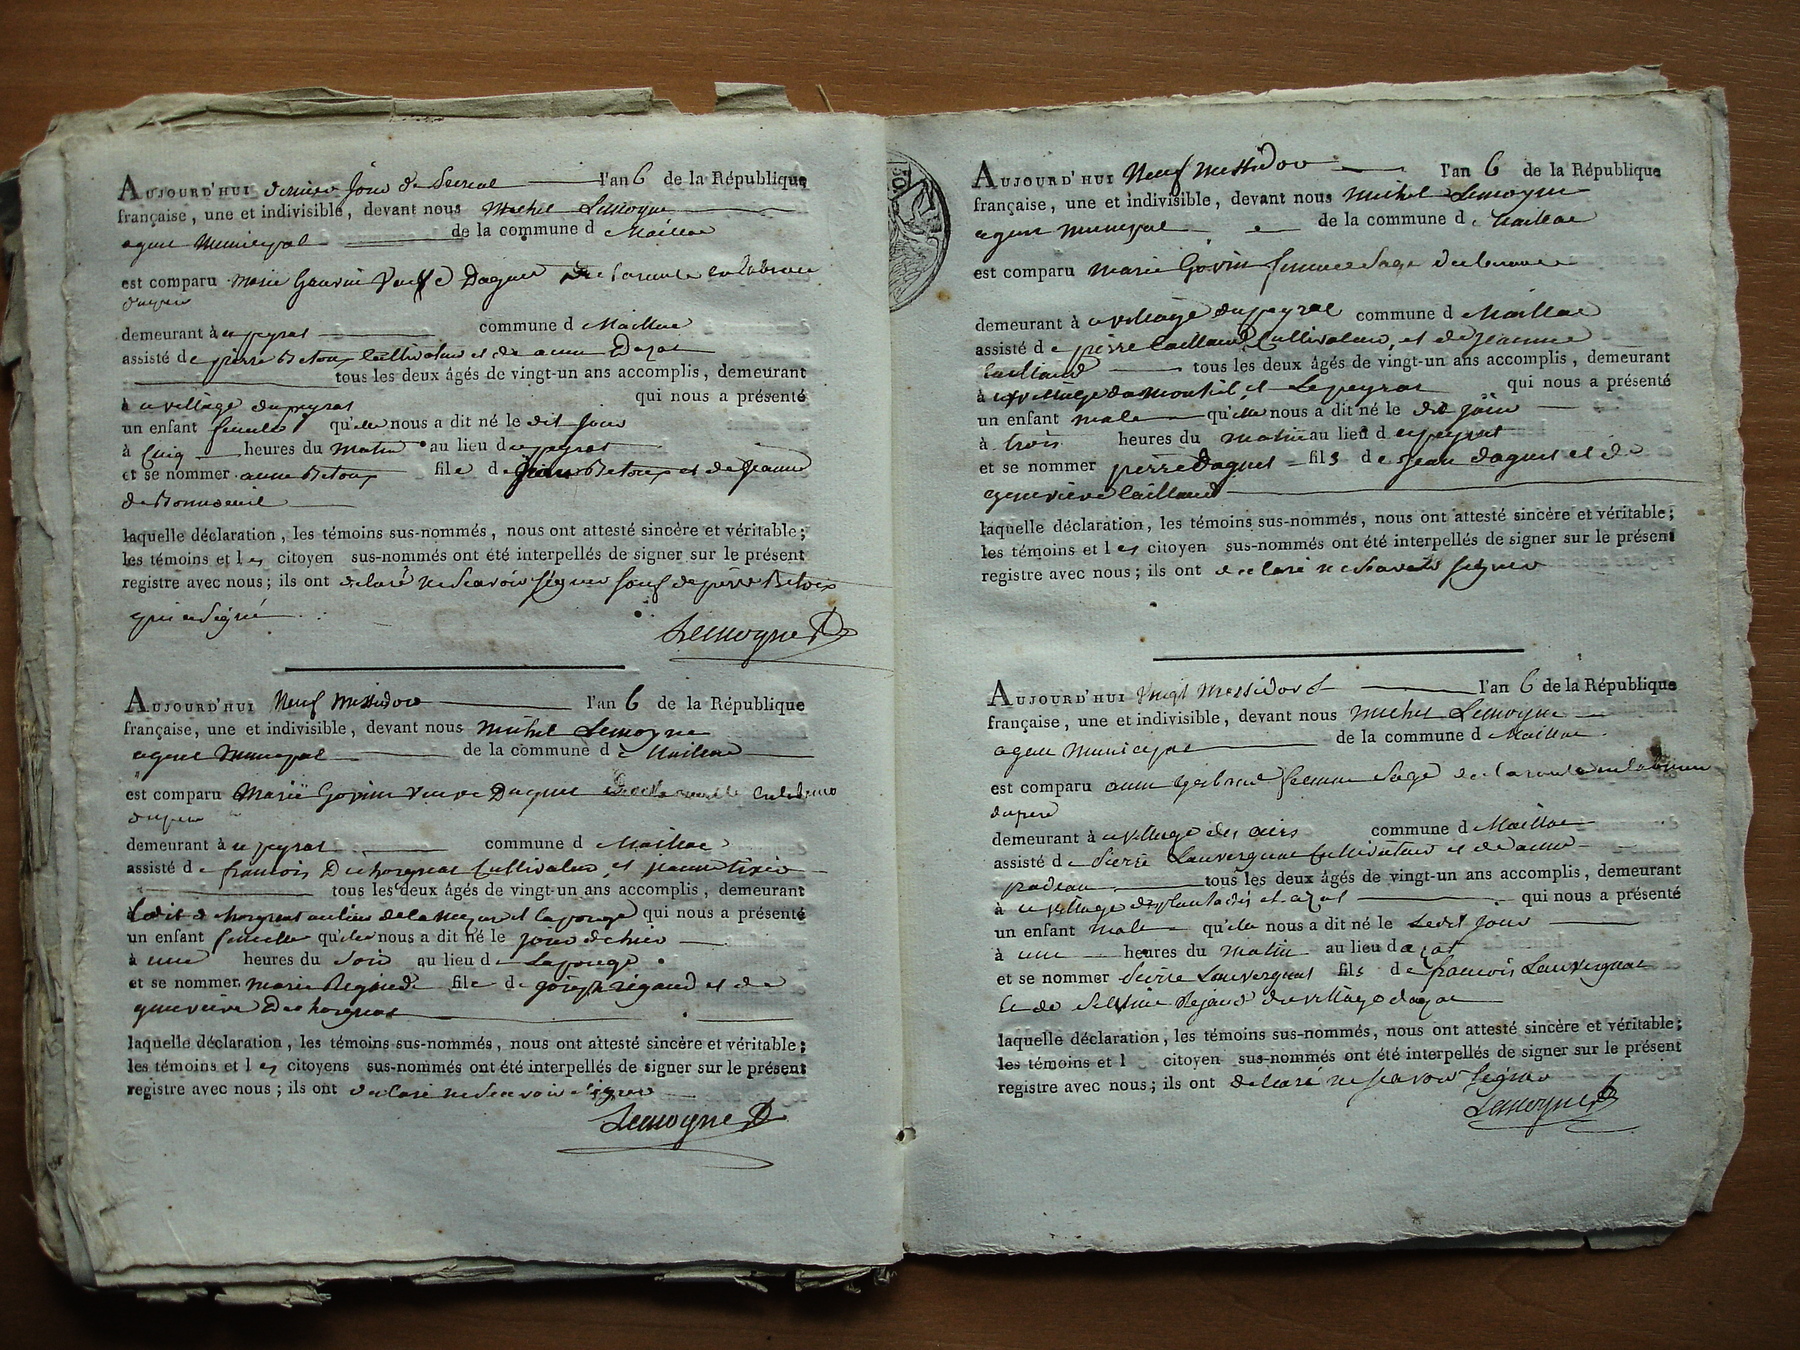 AUJOURD'HUI dernier jour de l'an 6 de la République
française, une et indivisible, devant nous Michel Lemoyne
agent Municipal de la commune d e Maillac
est comparu Marie Gauvin Daguet
du père
demeurant à u peyrat commune d Maillac
assisté d e pierre Betoux Cultivateur et de anne Dazat
tous les deux âgés de vingt-un ans accomplis, demeurant
à u village du peyrat qui nous a présenté
un enfant femelle qu'elle nous a dit né le dit jour
à Cinq heures du Matin au lieu d u peyrat
et se nommer anne Betoux file d e Jean Betoux et de Jeanne
de Bonnoeuil
laquelle déclaration, les témoins sus-nommés, nous ont attesté sincère et véritable;
les témoins et l es citoyen sus-nommés ont été interpellés de signer sur le présent
registre avec nous; ils ont declaré ne Scavoir Signer Sauf de pierre Betoux
qui a Signé
Lemoyne
AUJOURD'HUI Neuf Messidore l'an 6 de la République
française, une et indivisible, devant nous Michel Lemoyne
agent Municipal de la commune d e Maillac
est comparu Marie Govin Veuve Daguet
du père
demeurant à u peyrat commune d Maillac
assisté d e francois Dechorgnac Cultivateur et jeanne tixier
tous les deux âgés de vingt-un ans accomplis, demeurant
qui nous a présenté
un enfant femelle qu'elle nous a dit né le jour de hier
à une heures du Soir au lieu d e Lapouge
et se nommer marie Regaud file d e joseph rigaud et de
genevieve Dechorgnac
laquelle déclaration, les témoins sus-nommés, nous ont attesté sincère et véritable;
les témoins et l es citoyens sus-nommés ont été interpellés de signer sur le présent
registre avec nous; ils ont declaré ne Scavoir Signer
Lemoyne
AUJOURD'HUI Neuf Messidor l'an 6 de la République
française, une et indivisible, devant nous Michel Lemoyne
agent Municipal de la commune d e Maillac
est comparu Marie Govin femme Sage
demeurant à u village du peyrat commune d e Maillac
assisté d e pierre Caillaud Cultivateur, et de Jeanne
Caillaud tous les deux âgés de vingt-un ans accomplis, demeurant
à u village du et Le peyrat qui nous a présenté
un enfant male qu'elle nous a dit né le dit jour
à trois heures du matin au lieu d u peyrat
et se nommer pierre Daguet fils d e Jean daguet et de
genevieve Caillaud
laquelle déclaration, les témoins sus-nommés, nous ont attesté sincère et véritable;
les témoins et l es citoyen sus-nommés ont été interpellés de signer sur le présent
registre avec nous; ils ont declaré ne Scavoir Signer
AUJOURD'HUI Vingt Messidore l'an 6 de la République
française, une et indivisible, devant nous Michel Lemoyne
agent Municipal de la commune d e Maillac
est comparu anne femme Sage
du pere
demeurant à u village des airs commune d Maillac
assisté d e Pierre Lauvergnat Cultivateur et de anne
padeau tous les deux âgés de vingt-un ans accomplis, demeurant
à u village de et azat qui nous a présenté
un enfant male qu'elle nous a dit né le Ledit Jour
à une heures du Matin au lieu d azat
et se nommer Pierre Lauvergnat fils d e francois Lauvergnat
Et de du village dazat
laquelle déclaration, les témoins sus-nommés, nous ont attesté sincère et véritable;
les témoins et l citoyen sus-nommés ont été interpellés de signer sur le présent
registre avec nous; ils ont declaré ne Scavoir Signer
Lemoyne